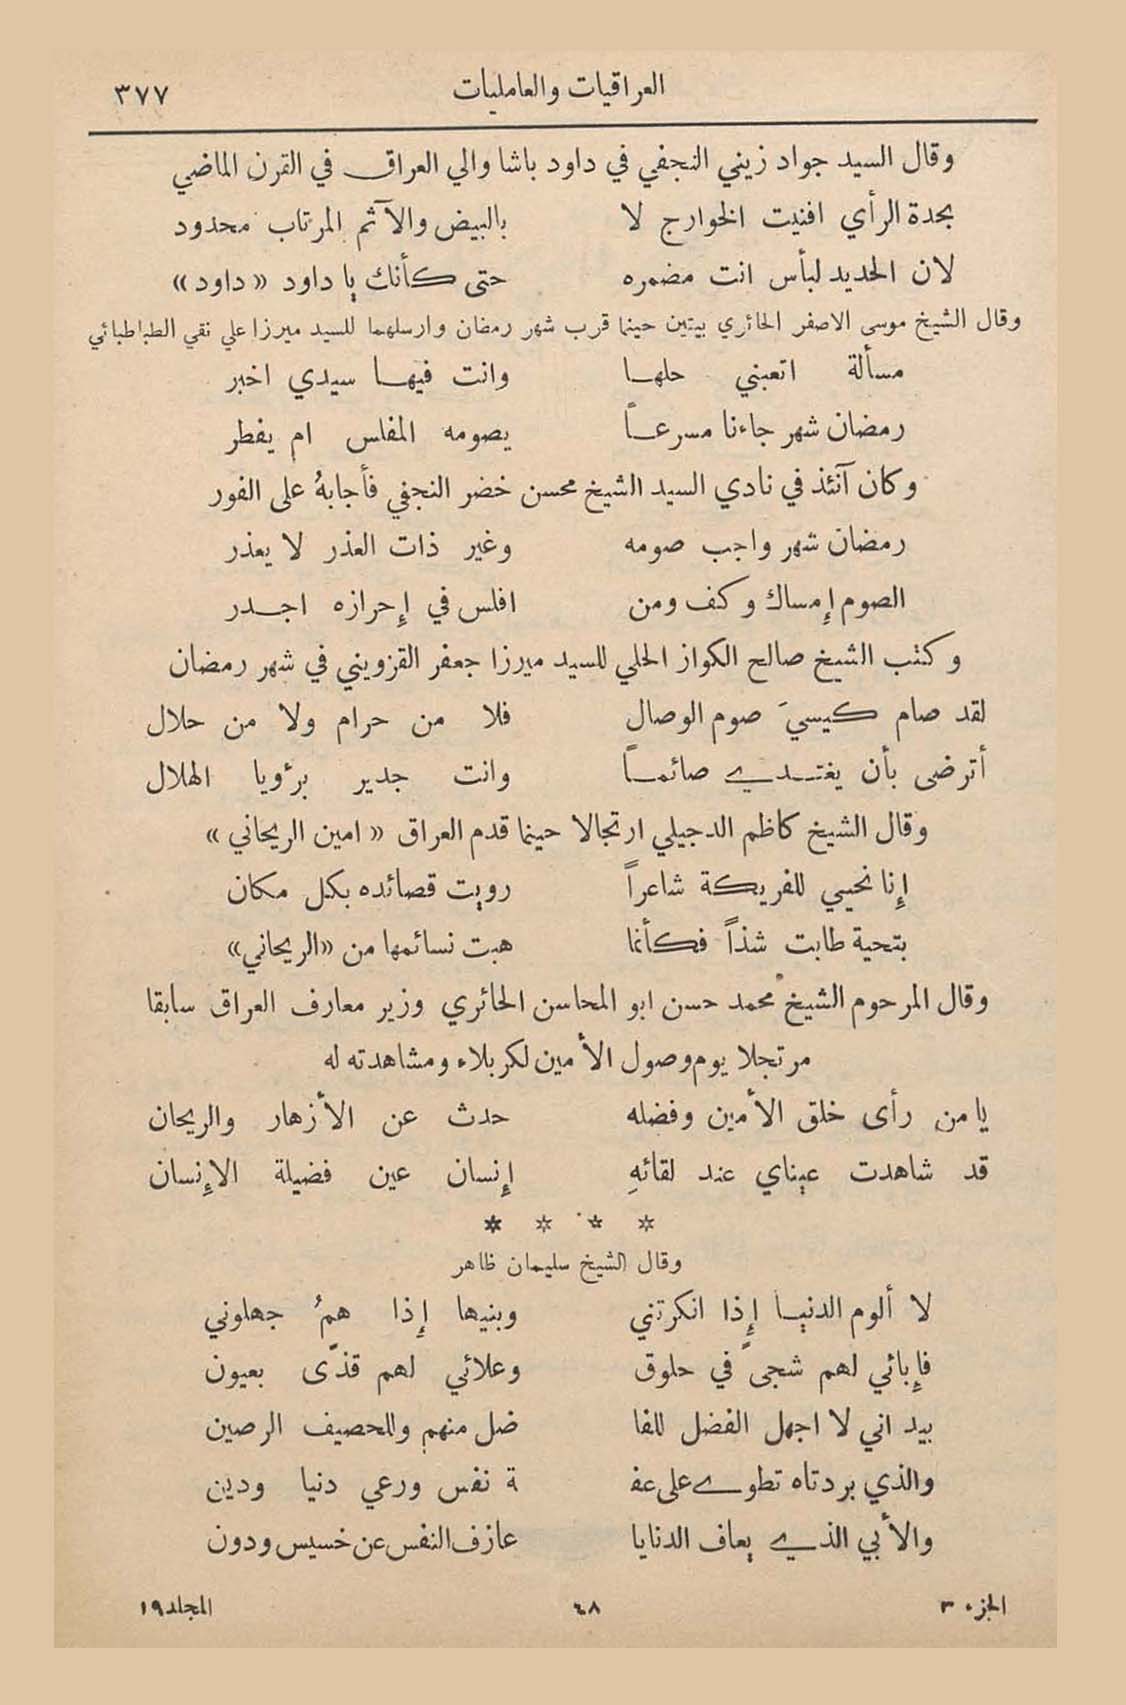 العراقيات والعامليات ٣٧٧
وقال السيد جواد زيني النجفي في داود باشا والي العراق في القرن الماضي
بحدة الرأي افنيت الخوارج لا بالبيض والآثم المرتاب محدود
لان الحديد لبأس انت مضمره حتى كأنك يا داود «داود»
وقال الشيخ موسى الاصفر الحائري بيتين حينما قرب شهر رمضان وارسلهما للسيد ميرزا علي نقي الطباطبائي
مسألة اتعبني حلها وانت فيها سيدي اخبر
رمضان شهر جاءنا مسرعاً يصومه المفلس ام يفطر
وكان آنئذ في نادي السيد الشيخ محسن خضر النجفي فأجابهُ على الفور
رمضان شهر واجب صومه وغير ذات العذر لا يعذر
الصوم إمساك وكف ومن افلس في إحرازه اجدر
وكتب الشيخ صالح الكواز الحلي للسيد ميرزا جعفر القزويني في شهر رمضان
لقد صام كيسيَ صوم الوصال فلا من حرام ولا من حلال
أترضى بأن يغتدي صائماً وانت جدير برؤيا الهلال
وقال الشيخ كاظم الدجيلي ارتجالا حينما قدم العراق «امين الريحاني»
إنا نحيي للفريكة شاعراً رويت قصائده بكل مكان
بتحية طابت شذاً فكأنما هبت نسائمها من «الريحاني»
وقال المرحوم الشيخ محمد حسن ابو المحاسن الحائري وزير معارف العراق سابقا
مرتجلا يوم وصول الأمين لكربلاء ومشاهدته له
يا من رأى خلق الأمين وفضله حدث عن الأزهار والريحان
قد شاهدت عيناي عند لقائهِ إنسان عين فضيلة الإنسان
* * * *
وقال الشيخ سليمان ظاهر
لا ألوم الدنيا إذا انكرتني وبنيها إذا همُ جهلوني
فإبائي لهم شجىً في حلوق وعلائي لهم قذّى بعيون
بيد اني لا اجهل الفضل للفا ضل منهم وللحصيف الرصين
والذي بردتاه تطوى على عف ة نفس ورعي دنيا ودين
والأبي الذي يعاف الدنايا عازف النفس عن خسيس ودون
الجزء ٣ ٤٨ المجلد ١٩